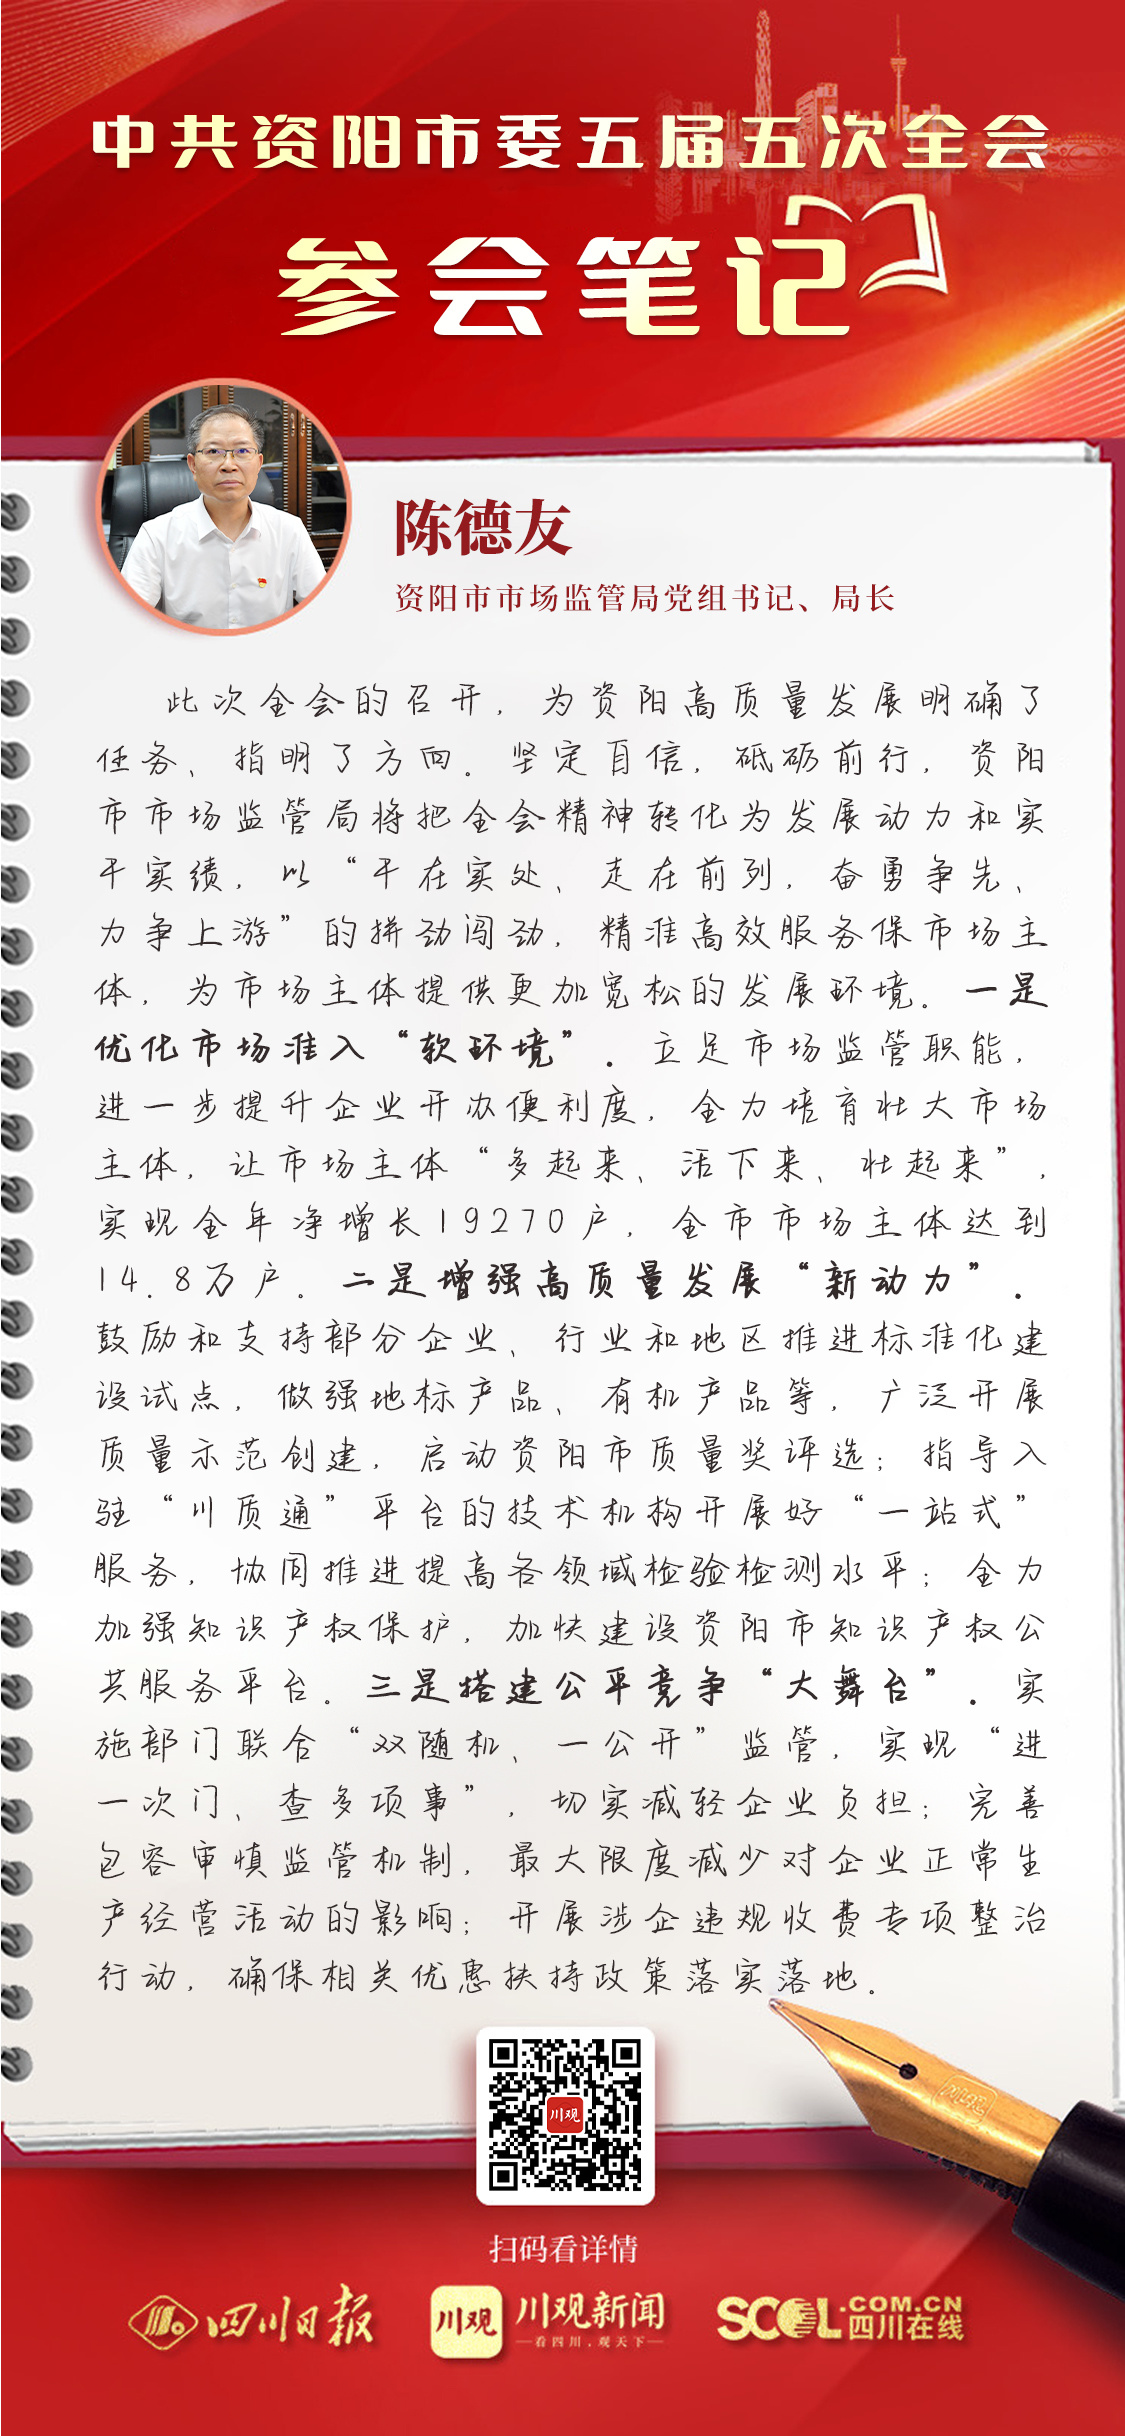 中共资阳市委五届五次全会
参会笔记
陈德友
资阳市市场监管局党组书记、局长
此次全会的召开，为资阳高质量发展明确了
任务、指明了方向。坚定自信，砥砺前行，资阳
市市场监管局将把全会精神转化为发展动力和实
干实绩，以“干在实处、走在前列，奋勇争先、
力争上游”的拼劲闯劲，精准高效服务保市场主
体，为市场主体提供更加宽松的发展环境。一是
优化市场准入“软环境”。立足市场监管职能，
进一步提升企业开办便利度，全力培育壮大市场
主体，让市场主体“多起来、活下来、壮起来”，
实现全年净增长19270户，全市市场主体达到
14.8万户。二是增强高质量发展“新动力”。
鼓励和支持部分企业、行业和地区推进标准化建
设试点，做强地标产品、有机产品等，广泛开展
质量示范创建，启动资阳市质量奖评选；指导入
驻“川质通”平台的技术机构开展好“一站式”
服务，协同推进提高各领域检验检测水平；全力
加强知识产权保护，加快建设资阳市知识产权公
共服务平台。三是搭建公平竞争“大舞台”。实
施部门联合“双随机、一公开”监管，实现“进
一次门、查多项事”，切实减轻企业负担；完善
包容审慎监管机制，最大限度减少对企业正常生
产经营活动的影响；开展涉企违规收费专项整治
行动，确保相关优惠扶持政策落实落地。
川观
扫码看详情
四川日报
川观
川观新闻
看四川，观天下
SCOL.COM.CN
四川在线